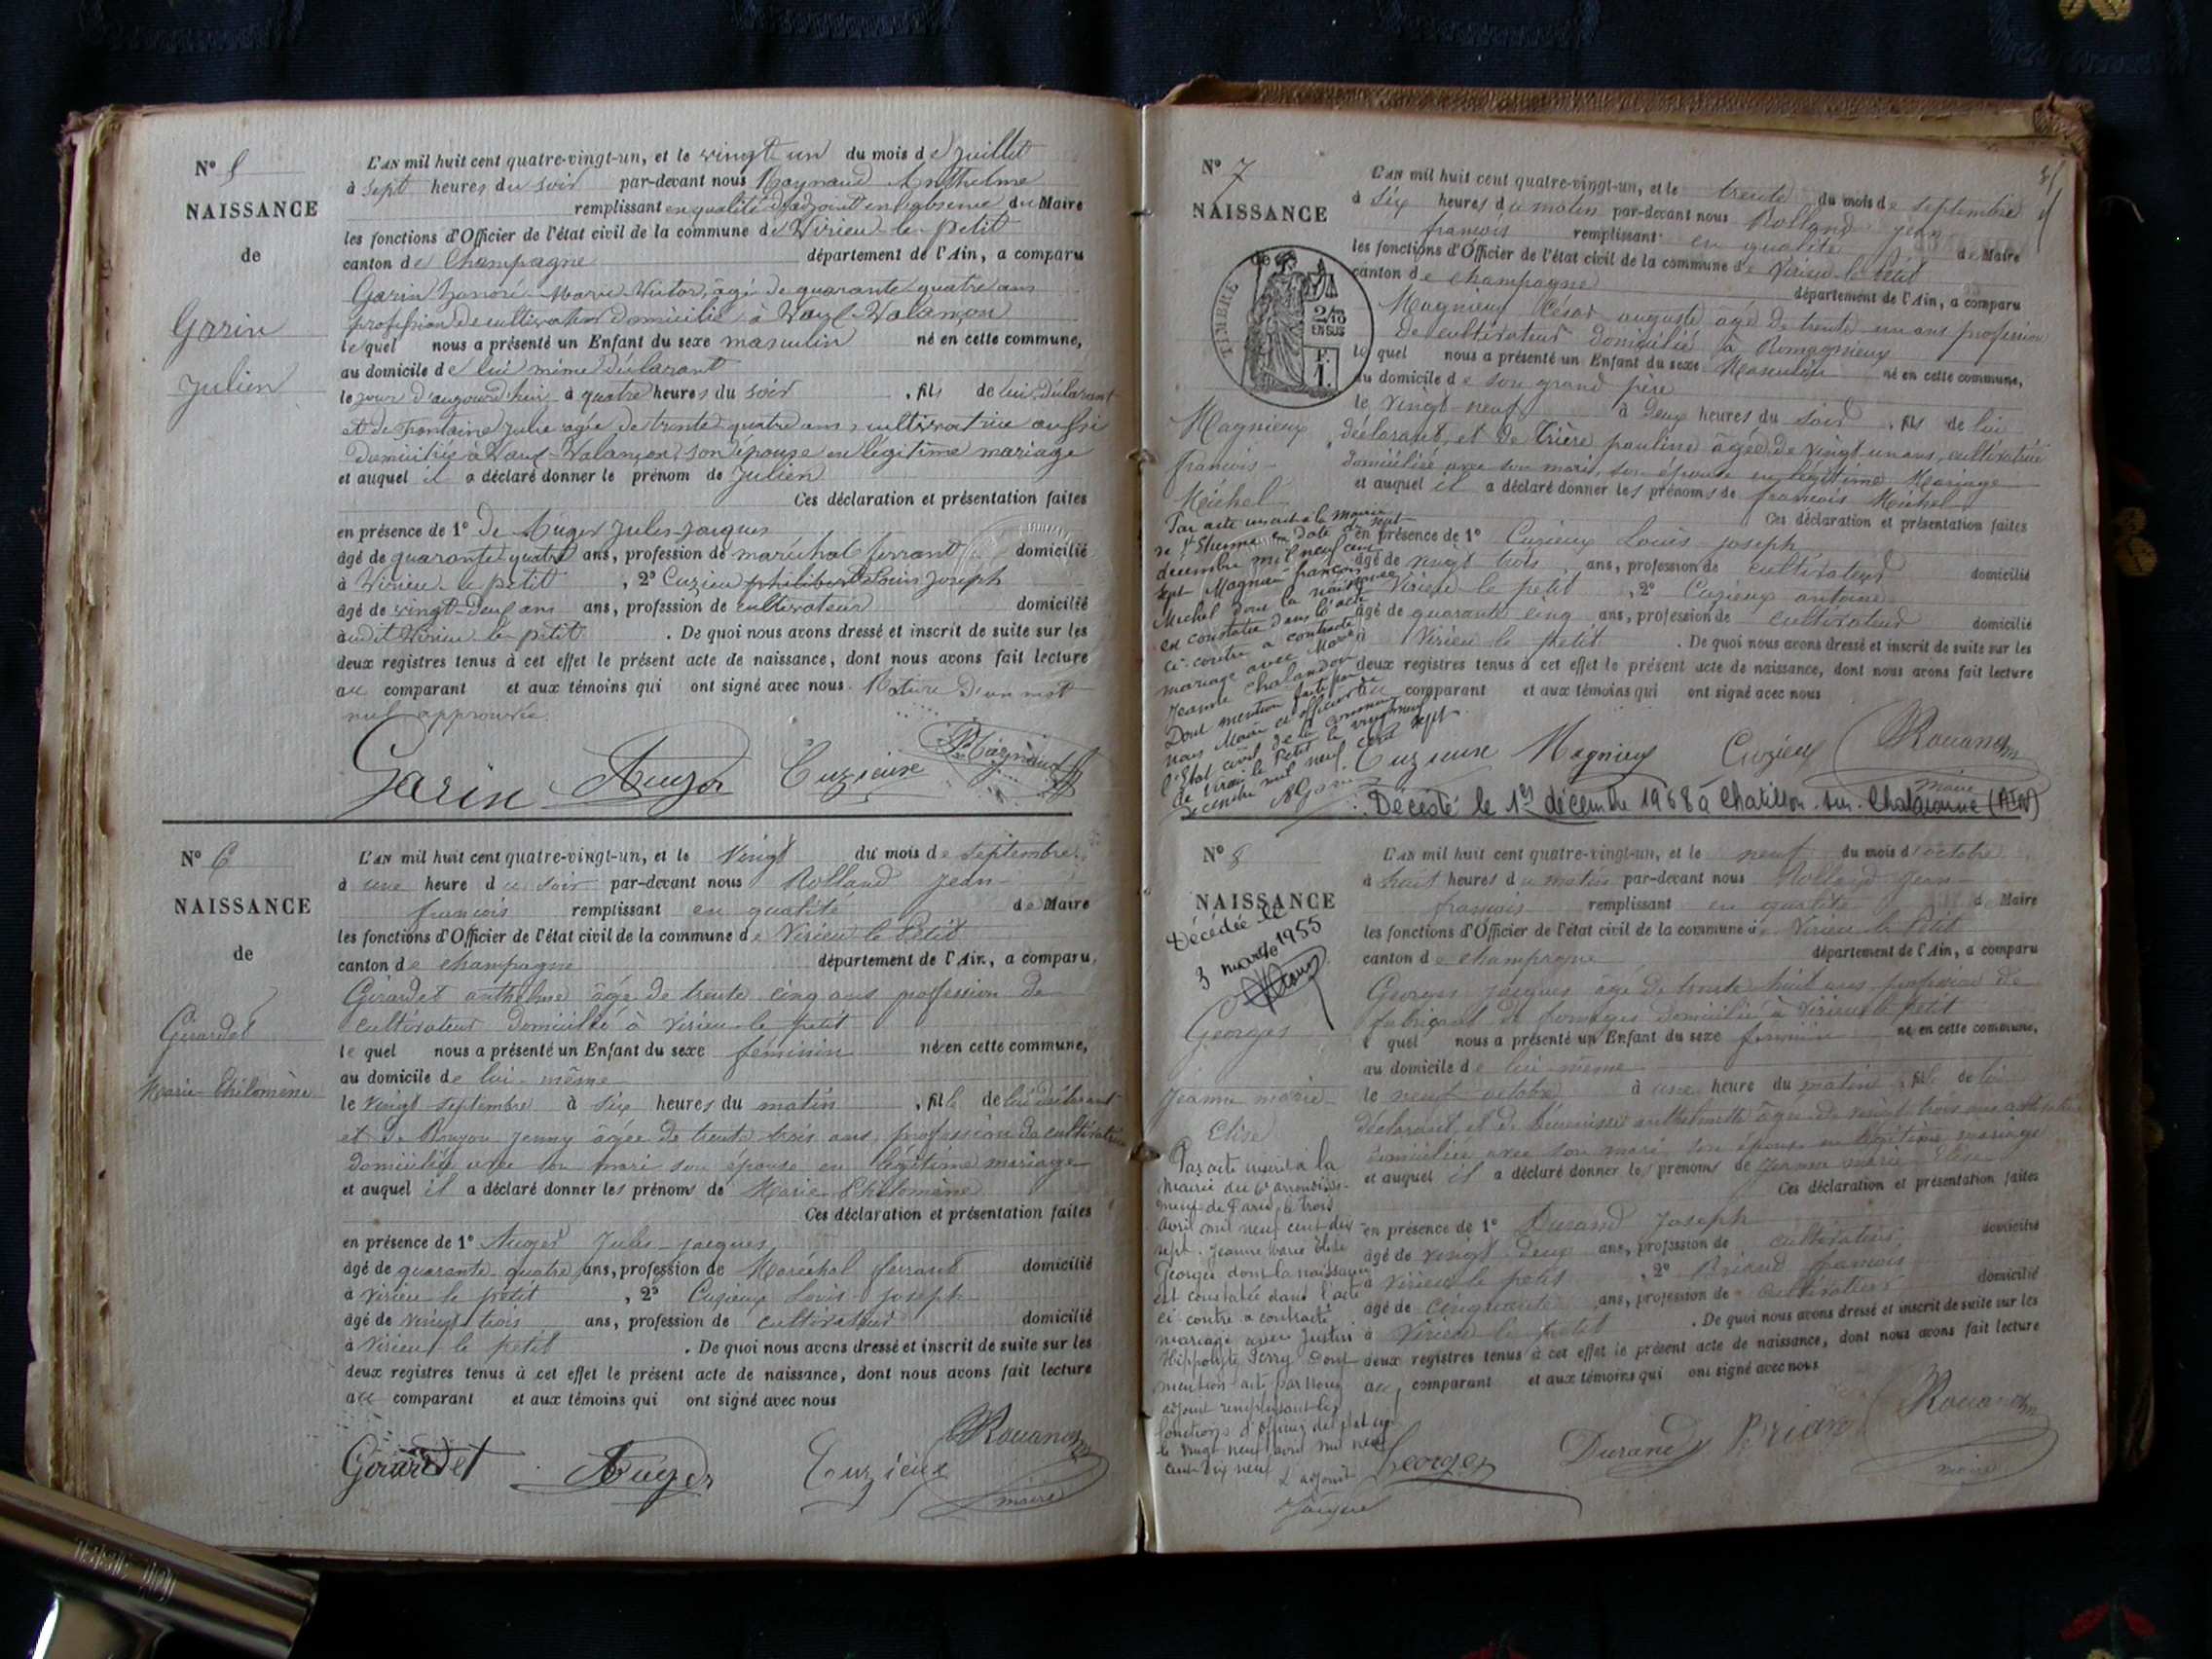 N° 5
NAISSANCE
de
Garin
Julien
L'AN mil huit cent quatre-vingt-un, et le vingt un du mois de Juillet
à sept heures du soir par-devant nous Raynaud Anthelme
remplissant en qualité d'adjoint en l'absence du Maire
les fonctions d'Officier de l'état civil de la commune de Virieu-le-Petit
canton de Champagne département de l'Ain, a comparu
Garin honoré Marie Victor, âgé de quarante quatre ans
profession de cultivateur domicilié à Vaux-Valançon
lequel nous a présenté un Enfant du sexe masculin né en cette commune,
au domicile de lui même déclarant
le jour d'aujourd'hui à quatre heures du soir, fils de lui déclarant
et de Fontaine Julie agée de trente quatre ans, cultivatrice aussi
domiciliée à Vaux-Valançon, son épouse en légitime mariage
et auquel il a déclaré donner le prénom de Julien
Ces déclaration et présentation faites
en présence de 1° de Auger Jules-Jacques
âgé de quarante quatre ans, profession de maréchal ferrant domicilié
à Virieu-le-petit, 2° Cuzieu philibert Louis Joseph
âgé de vingt-deux ans ans, profession de cultivateur domicilié
audit Virieu le-petit. De quoi nous avons dressé et inscrit de suite sur les
deux registres tenus à cet effet le présent acte de naissance, dont nous avons fait lecture
au comparant et aux témoins qui ont signé avec nous. Rature d'un mot
nul approuvée.
Garin Auger Cuzieux
N° 6
NAISSANCE
de
Girardet
Marie-Philomène
L'AN mil huit cent quatre-vingt-un, et le vingt du mois de septembre
à une heure du soir par-devant nous Rolland Jean
françois remplissant en qualité de Maire
les fonctions d'Officier de l'état civil de la commune de Virieu le Petit
canton de champagne département de l'Ain, a comparu,
Girardet anthelme âgé de trente cinq ans profession de
cultivateur domicilié à Virieu-le petit
lequel nous a présenté un Enfant du sexe feminin né en cette commune,
au domicile de lui-même
le vingt septembre à six heures du matin, fille de lui déclarant
et de Jenny âgée de trente trois ans, profession de cultivatrice
domiciliée avec son mari son épouse en légitime mariage
et auquel il a déclaré donner les prénoms de Marie Philomène
Ces déclaration et présentation faites
en présence de 1° Auger Jules-jacques
âgé de quarante-quatre ans, profession de Maréchal ferrant domicilié
à Virieu le petit, 2° Cuzieux Louis joseph
âgé de vingt trois ans, profession de cultivateur domicilié
à Virieu le petit. De quoi nous avons dressé et inscrit de suite sur les
deux registres tenus à cet effet le présent acte de naissance, dont nous avons fait lecture
au comparant et aux témoins qui ont signé avec nous
Girardet Auger Cuzieux
maire
N° 7
NAISSANCE
de
TIMBRE
2/10
EN SUS
F.
1.
Magnieux
françois
Michel
L'AN mil huit cent quatre-vingt-un, et le trente du mois de septembre
à six heures du matin par-devant nous Rolland jean
françois remplissant en qualité de Maire
les fonctions d'Officier de l'état civil de la commune de Virieu-le-Petit
canton de champagne département de l'Ain, a comparu
Magnieux César auguste âgé de trente un ans profession
de cultivateur domicilié à Romagnieux
lequel nous a présenté un Enfant du sexe Masculin né en cette commune,
au domicile de son grand père
le vingt neuf à deux heures du soir, fils de lui
déclarant, et de Trière pauline âgée de vingt un ans, cultivatrice
domiciliée avec son mari, son épouse en légitime Mariage
et auquel il a déclaré donner les prénoms de françois Michel
Ces déclaration et présentation faites
en présence de 1° Cuzieux Louis joseph
âgé de vingt trois ans, profession de cultivateur domicilié
à Virieu le petit, 2° Cuzieux antoine
âgé de quarante cinq ans, profession de cultivateur domicilié
à Virieu le petit. De quoi nous avons dressé et inscrit de suite sur les
deux registres tenus à cet effet le présent acte de naissance, dont nous avons fait lecture
au comparant et aux témoins qui ont signé avec nous
Par acte inscrit à la mairie
de St Etienne en date du sept
decembre mil neuf cent
sept Magnieu françois
Michel dont la naissance
est constatée dans l'acte
ci-contre a contracté
mariage avec Marie
Jeanne Chalandon
Dont mention faite par
nous Maire et officier de
l'Etat civil de la commune
de Virieu le Petit le vingt neuf
decembre mil neuf cent sept
Cuzieux Magnieux Cuzieux
maire
Décédé le 1er décembre 1968 à Chatillon-sur-Chalaronne (AIN)
N° 8
NAISSANCE
Décédée le
3 mars 1955
Georges
Jeanne marie
Elise
L'AN mil huit cent quatre-vingt-un, et le neuf du mois d'octobre
à huit heures du matin par-devant nous Rolland jean
françois remplissant en qualité de Maire
les fonctions d'Officier de l'état civil de la commune de Virieu le Petit
canton de champagne département de l'Ain, a comparu
Georges jacques âgé de trente huit ans profession de
fabricant de fromages domicilié à Virieu le Petit
lequel nous a présenté un Enfant du sexe féminin né en cette commune,
au domicile de lui-même
le neuf octobre à une heure du matin, fille de lui
déclarant, et de anthelmette âgée de vingt trois ans cultivatrice
domiciliée avec son mari son épouse en légitime mariage
et auquel il a déclaré donner les prénoms de jeanne marie Elise
Ces déclaration et présentation faites
en présence de 1° Durand Joseph
âgé de vingt deux ans, profession de cultivateur domicilié
à Virieu le petit, 2° Briand françois
âgé de cinquante ans, profession de cultivateur domicilié
à Virieu le petit. De quoi nous avons dressé et inscrit de suite sur les
deux registres tenus à cet effet le présent acte de naissance, dont nous avons fait lecture
au comparant et aux témoins qui ont signé avec nous
Par acte inscrit à la
mairie du 6e arrondisse-
ment de Paris, le trois
avril mil neuf cent dix
sept. Jeanne Marie Elise
Georges dont la naissance
est constatée dans l'acte
ci-contre a contracté
mariage avec Justin
Hippolyte Ferry dont
mention faite par nous
adjoint remplissant les
fonctions d'officier de l'état civil
le vingt neuf avril mil neuf
cent dix neuf
L'adjoint
Georges Durand Briand
maire